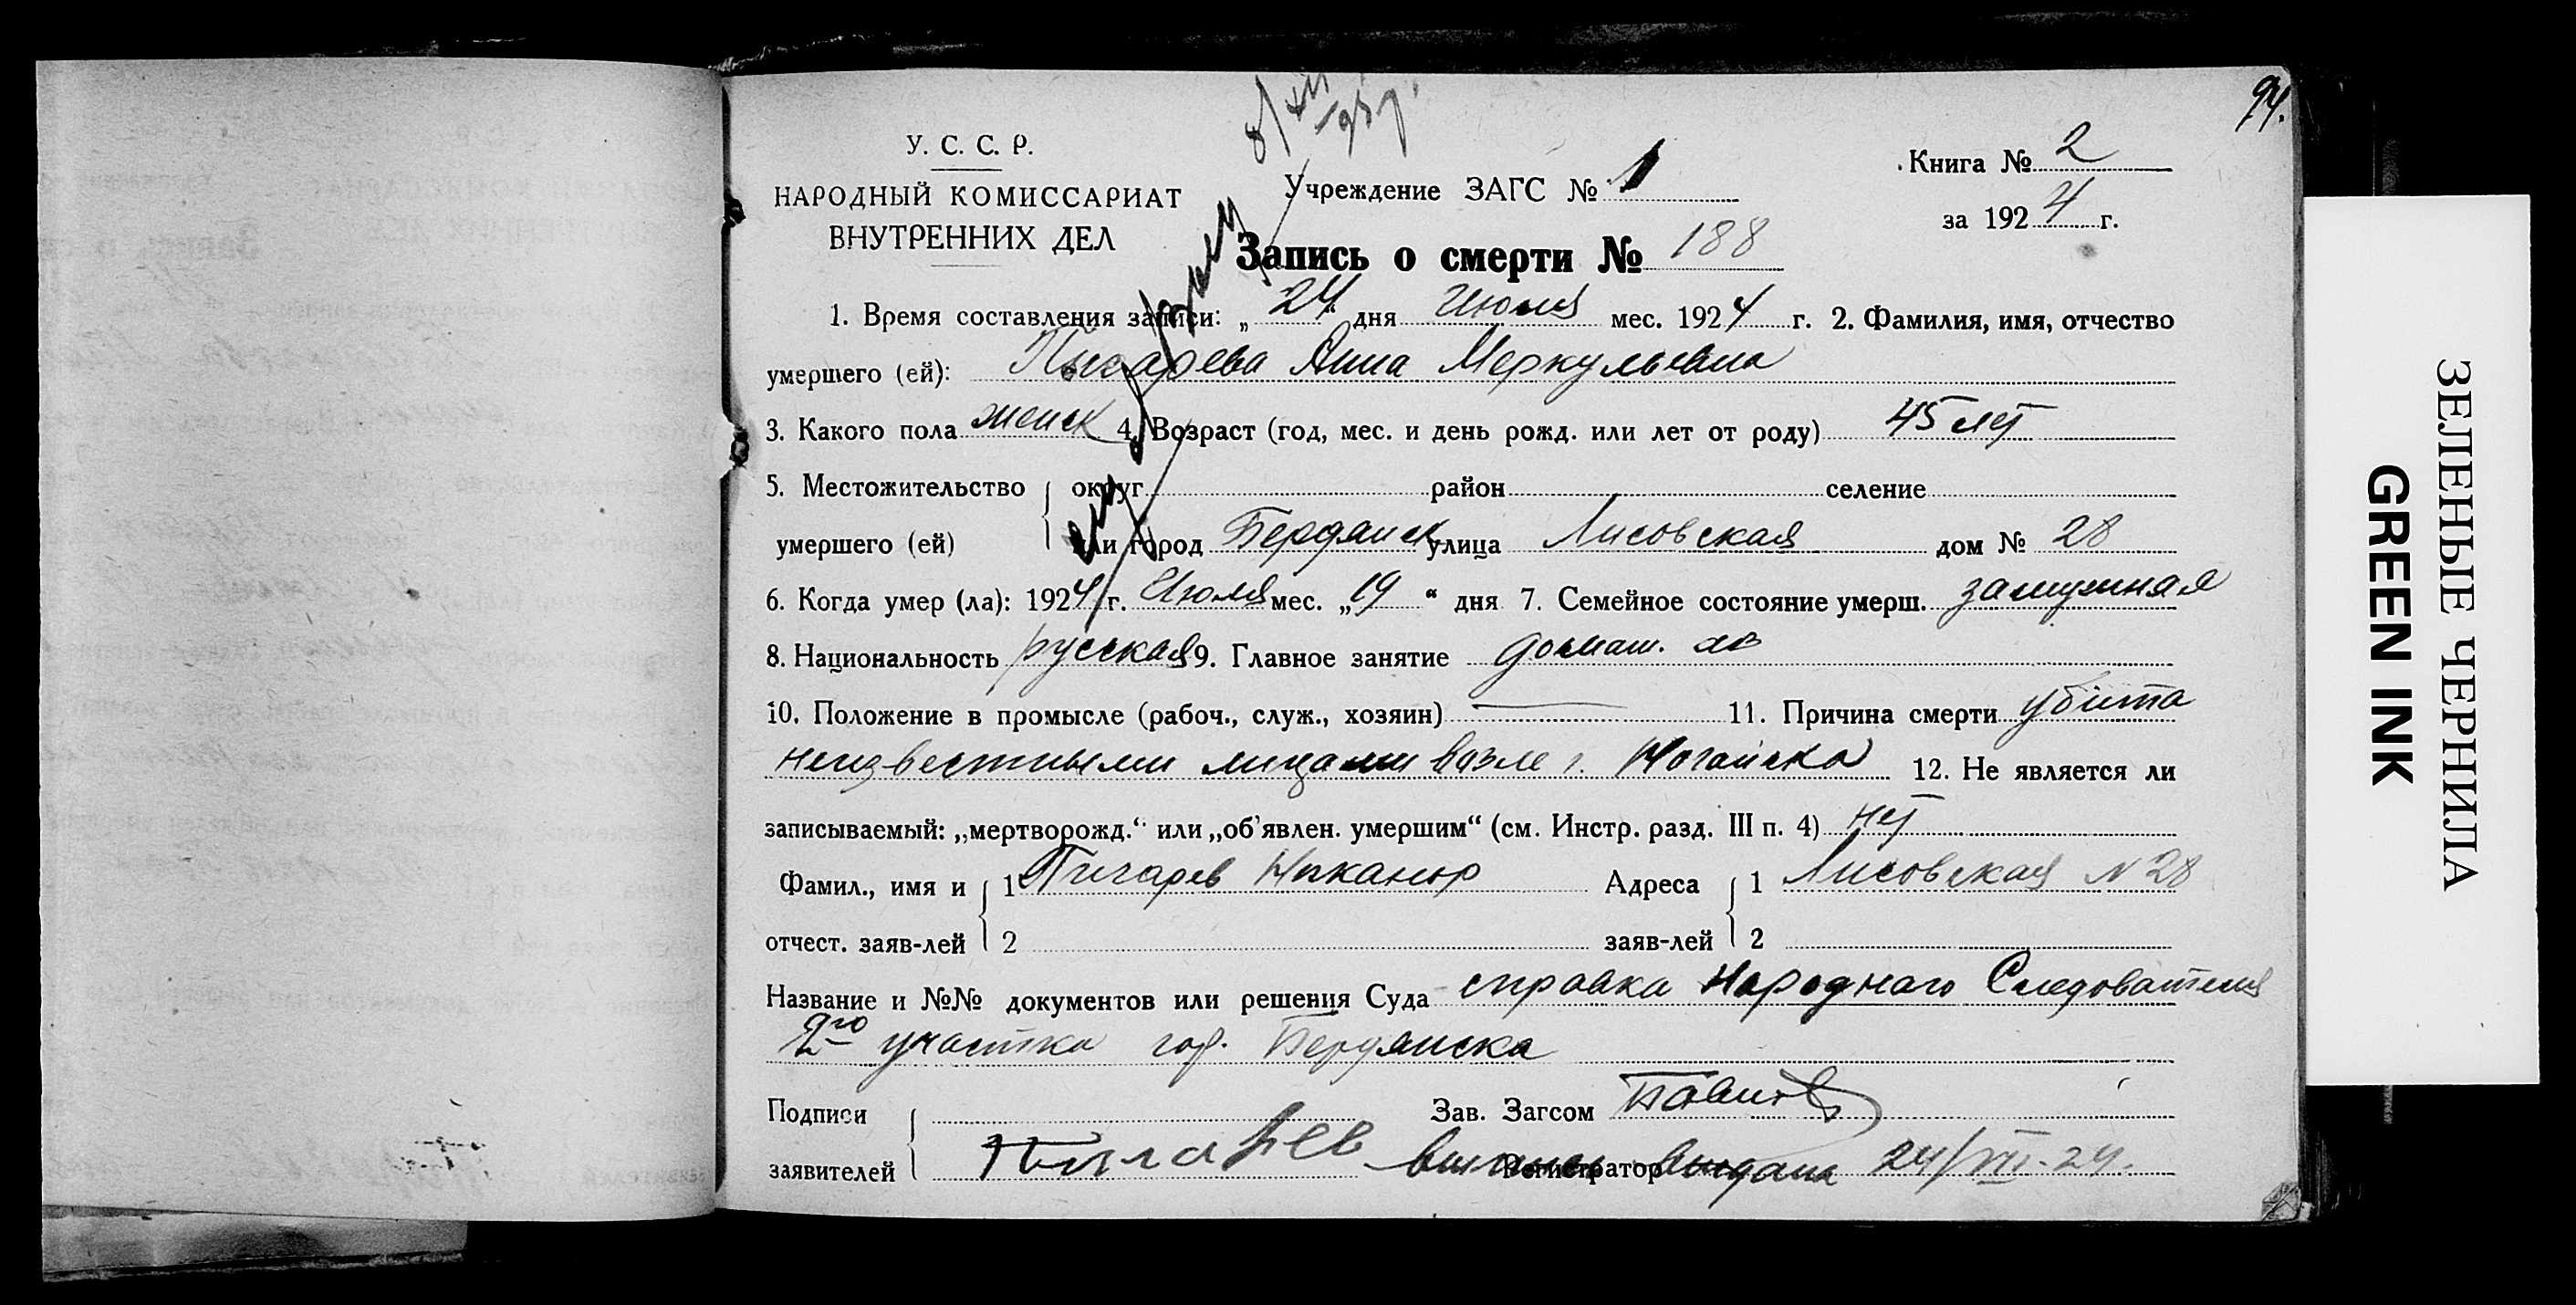 94.
У. С. С. Р.
НАРОДНЫЙ КОМИССАРИАТ
ВНУТРЕННИХ ДЕЛ
Учреждение ЗАГС № 1
Книга № 2
за 1924 г.
Запись о смерти № 188
1. Время составления записи: „24“ дня Июля мес. 1924 г. 2. Фамилия, имя, отчество
умершего (ей): Пичарева Анна Меркульевна
3. Какого пола женск 4. Возраст (год, мес. и день рожд. или лет от роду) 45 лет
5. Местожительство округ район селение
умершего (ей) или город Бердянск улица Лисовская дом № 28
6. Когда умер (ла): 1924 г. Июля мес. „19“ дня 7. Семейное состояние умерш. замужная
8. Национальность русская 9. Главное занятие домаш. хоз
10. Положение в промысле (рабоч., служ., хозяин) — 11. Причина смерти убита
неизвестными лицами возле г. Ногайска 12. Не является ли
записываемый: „мертворожд.“ или „об'явлен. умершим“ (см. Инстр. разд. III п. 4) нет
Фамил., имя и 1 Пичарев Никанор Адреса 1 Лисовская N 28
отчест. заяв-лей 2 заяв-лей 2
Название и №№ документов или решения Суда справка Народнаго Следователя
2го участка гор. Бердянска
Подписи Зав. Загсом
заявителей Пичарев Регистратор выдана 24/VII-24.
ЗЕЛЕНЫЕ ЧЕРНИЛА
GREEN INK